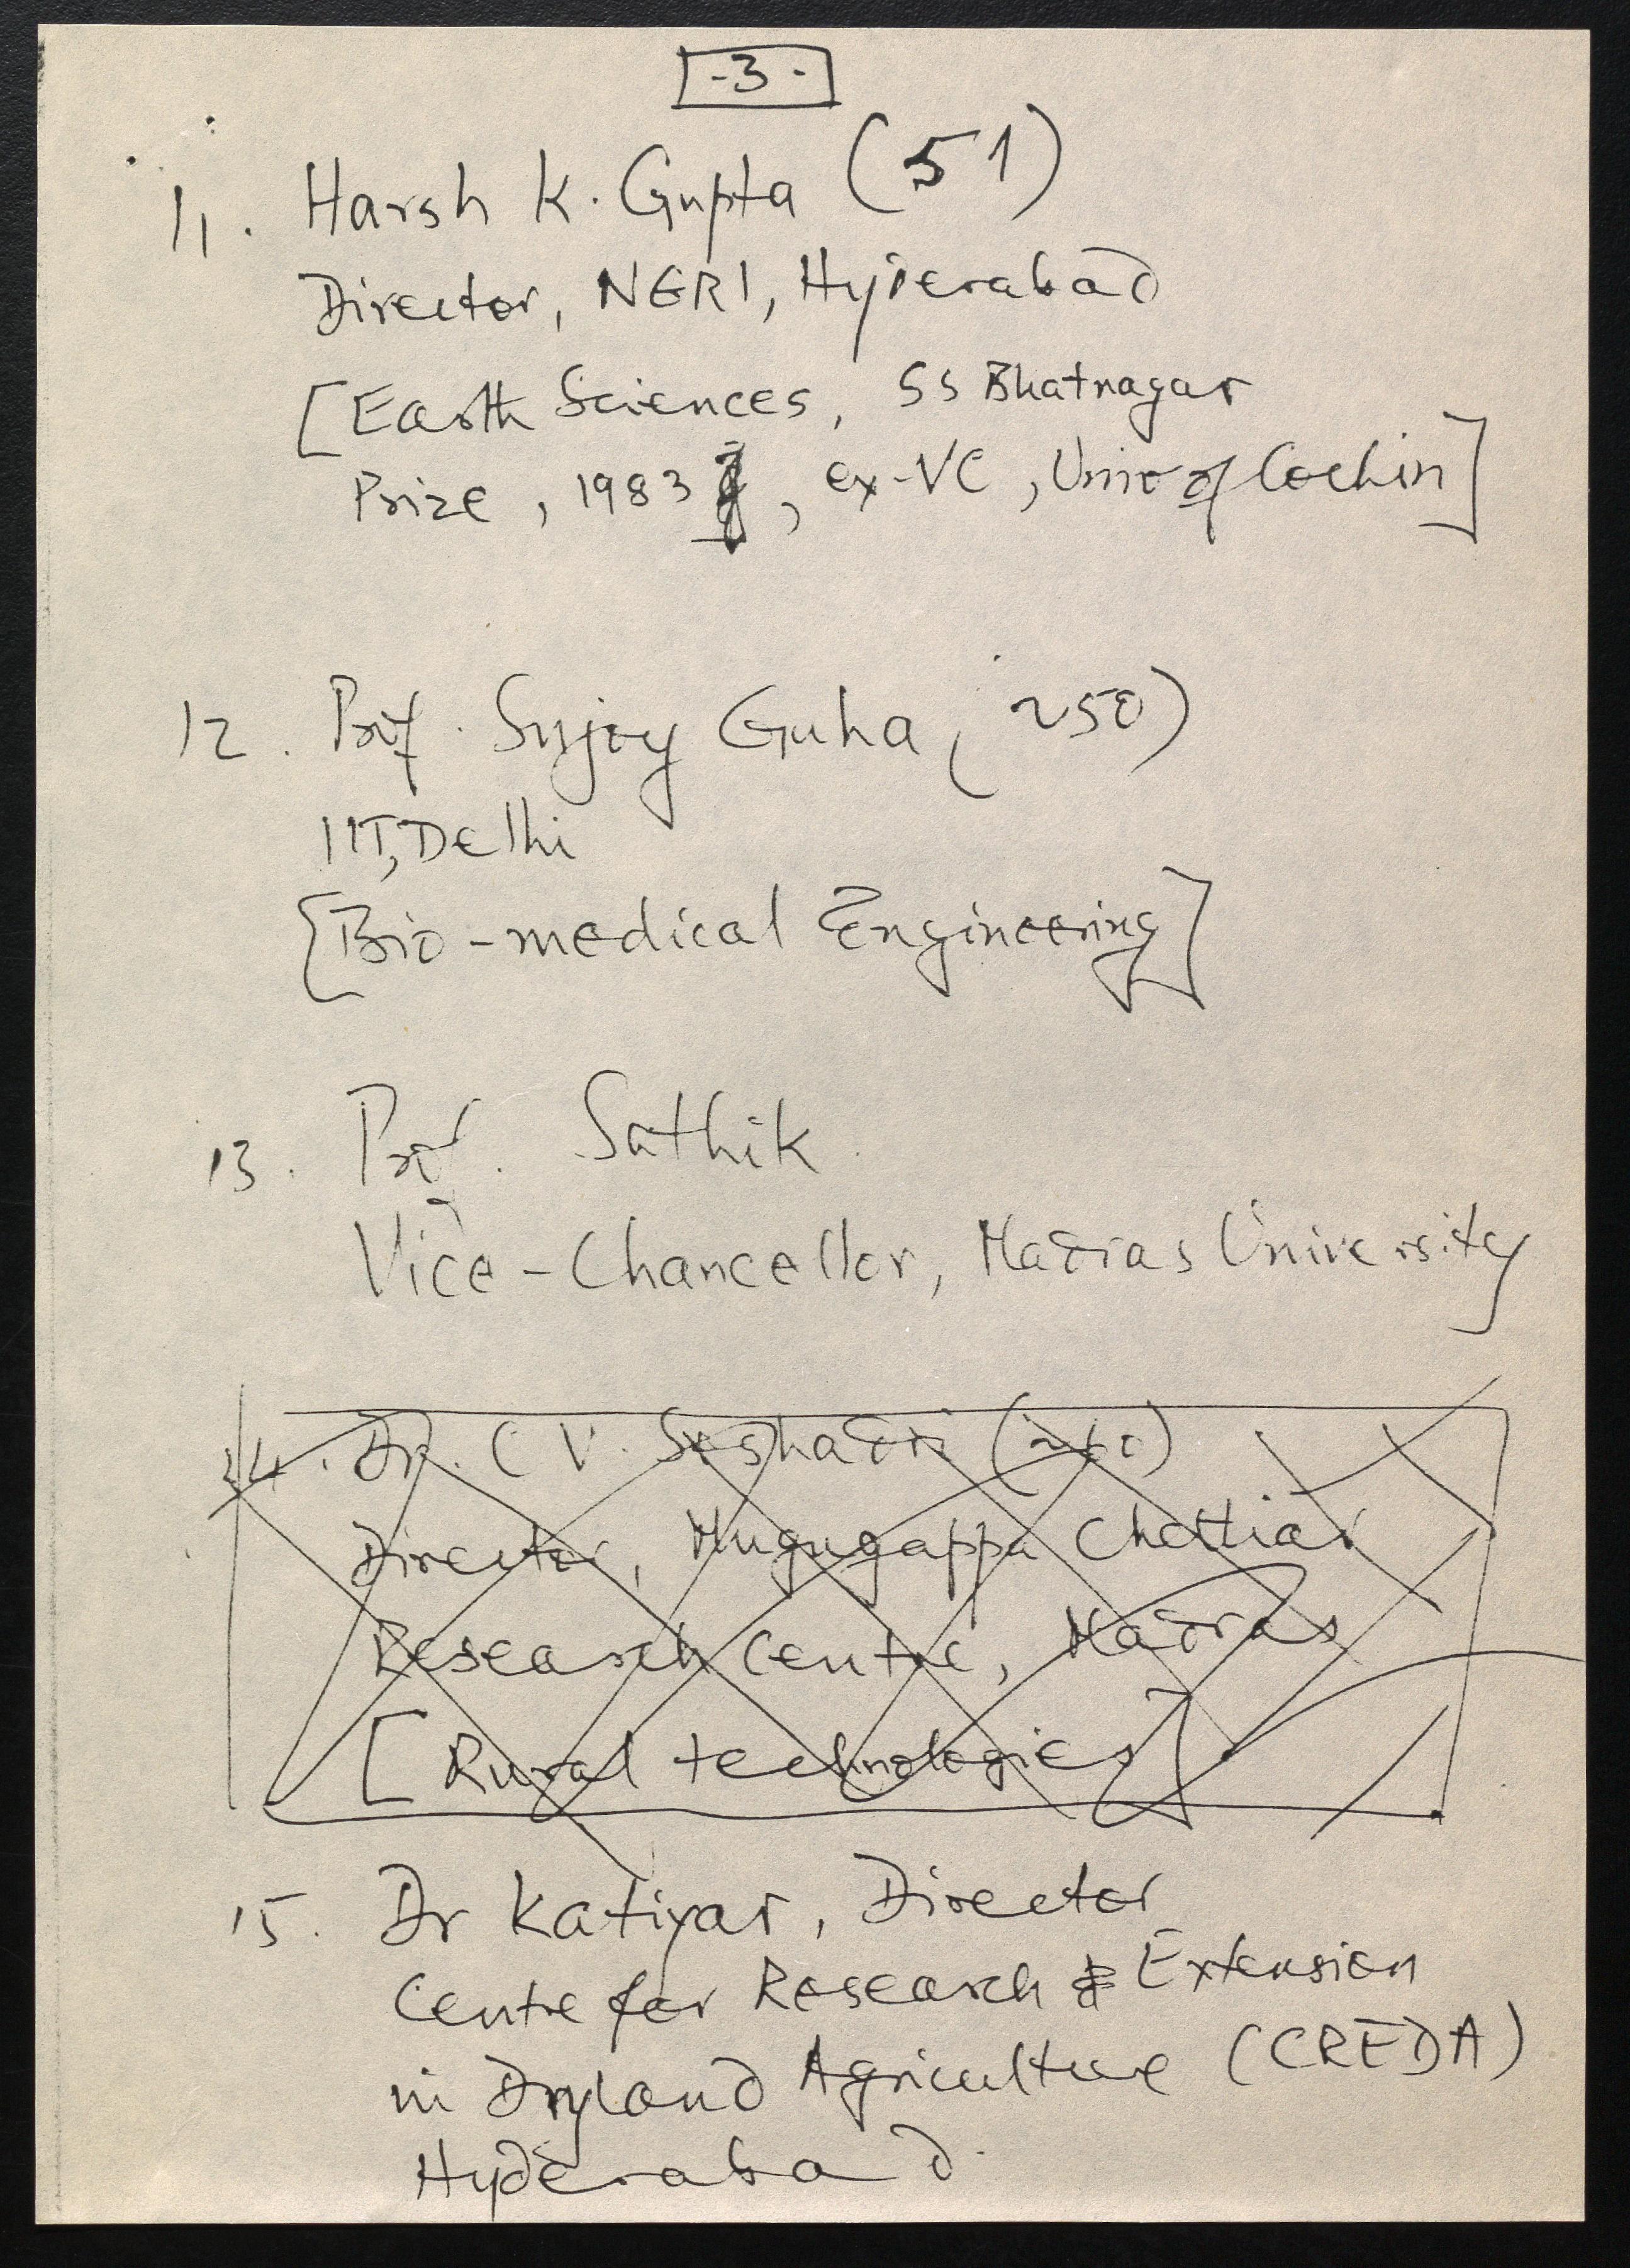 -3-
11. Harsh K. Gupta (51)
Director, NGRI, Hyderabad
[Earth Sciences, SS Bhatnagar
Prize, 1983, ex-VC, Univ of Cochin]
12. Prof. Sujoy Guha (~50)
IIT, Delhi
[Bio-medical Engineering]
13. Prof. Sathik
Vice-Chancellor, Madras University
14. Dr. C V. Seshadri (~60)
Director, Murugappa Chettiar
Research Centre, Madras
[Rural technologies]
15. Dr Katiyar, Director
Centre for Research & Extension
in Dryland Agriculture (CREDA)
Hyderabad